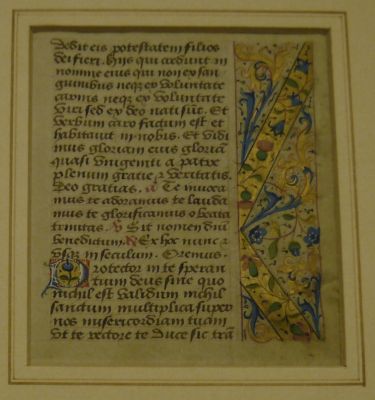 Dedit eis potestatem filios
dei fieri. Hijs qui credunt in
nomine eius qui non ex san
guinibus neqz ex voluntate
carnis neqz ex voluntate
viri sed ex deo nati sūt. Et
verbum caro factum est et
habitauit in nobis. Et vidi
mus gloriam eius gloriā
quasi vnigeniti a patre
plenum gratie ⁊ veritatis.
Deo gratias. a Te inuoca
mus te adoramus te lauda
mus te glorificamus o beata
trinitas. V Sit nomen dni
benedictum. R Ex hoc nunc ⁊
vsqz in seculum. Oremus.
Protector in te speran
tium deus sine quo
nichil est validum nichil
sanctum multiplica super
nos misericordiam tuam
vt te rectore te duce sic trā